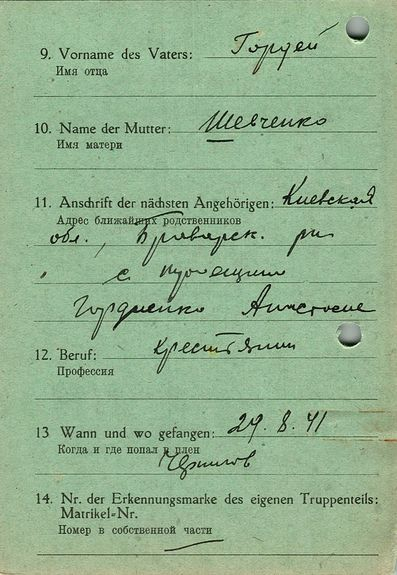 9. Vorname des Vaters: Гордей
Имя отца
10. Name der Mutter: Шевченко
Имя матери
11. Anschrift der nächsten Angehörigen: Киевская
Адрес ближайших родственников
обл., Броварск. р-н
с
Гордиенко Анастасие
12. Beruf: крестьянин
Профессия
13 Wann und wo gefangen: 29. 8. 41
Когда и где попал в плен
Чернигов
14. Nr. der Erkennungsmarke des eigenen Truppenteils:
Matrikel-Nr.
Номер в собственной части